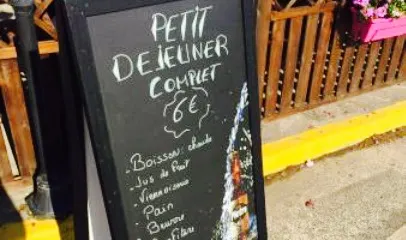 PETIT
DEJEUNER
COMPLET
6€
- Boisson chaude
- Jus de fruit
- Viennoiserie
- Pain
- Beurre